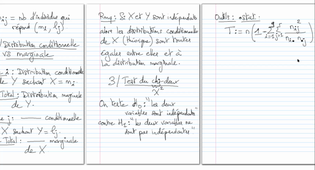 n_ij = nb d'individus qui
répond (m_i, l_j)
Distribution conditionnelle
vs marginale
e 2 : Distribution conditionnelle
de Y sachant X = m_i
Total : Distribution marginale
de Y.
e j : —— conditionnelle
X sachant Y = l_j
Total : —— marginale
de X
Rmq : Si X et Y sont indépendants
alors les distributions conditionnelles
de X (théorique) sont toutes
égales entre elles et à
la distribution marginale.
3/ Test du chi-deux
χ²
On teste H_0 : "les deux
variables sont indépendantes"
contre H_1 : "les deux variables ne
sont pas indépendantes"
Outil : stat.